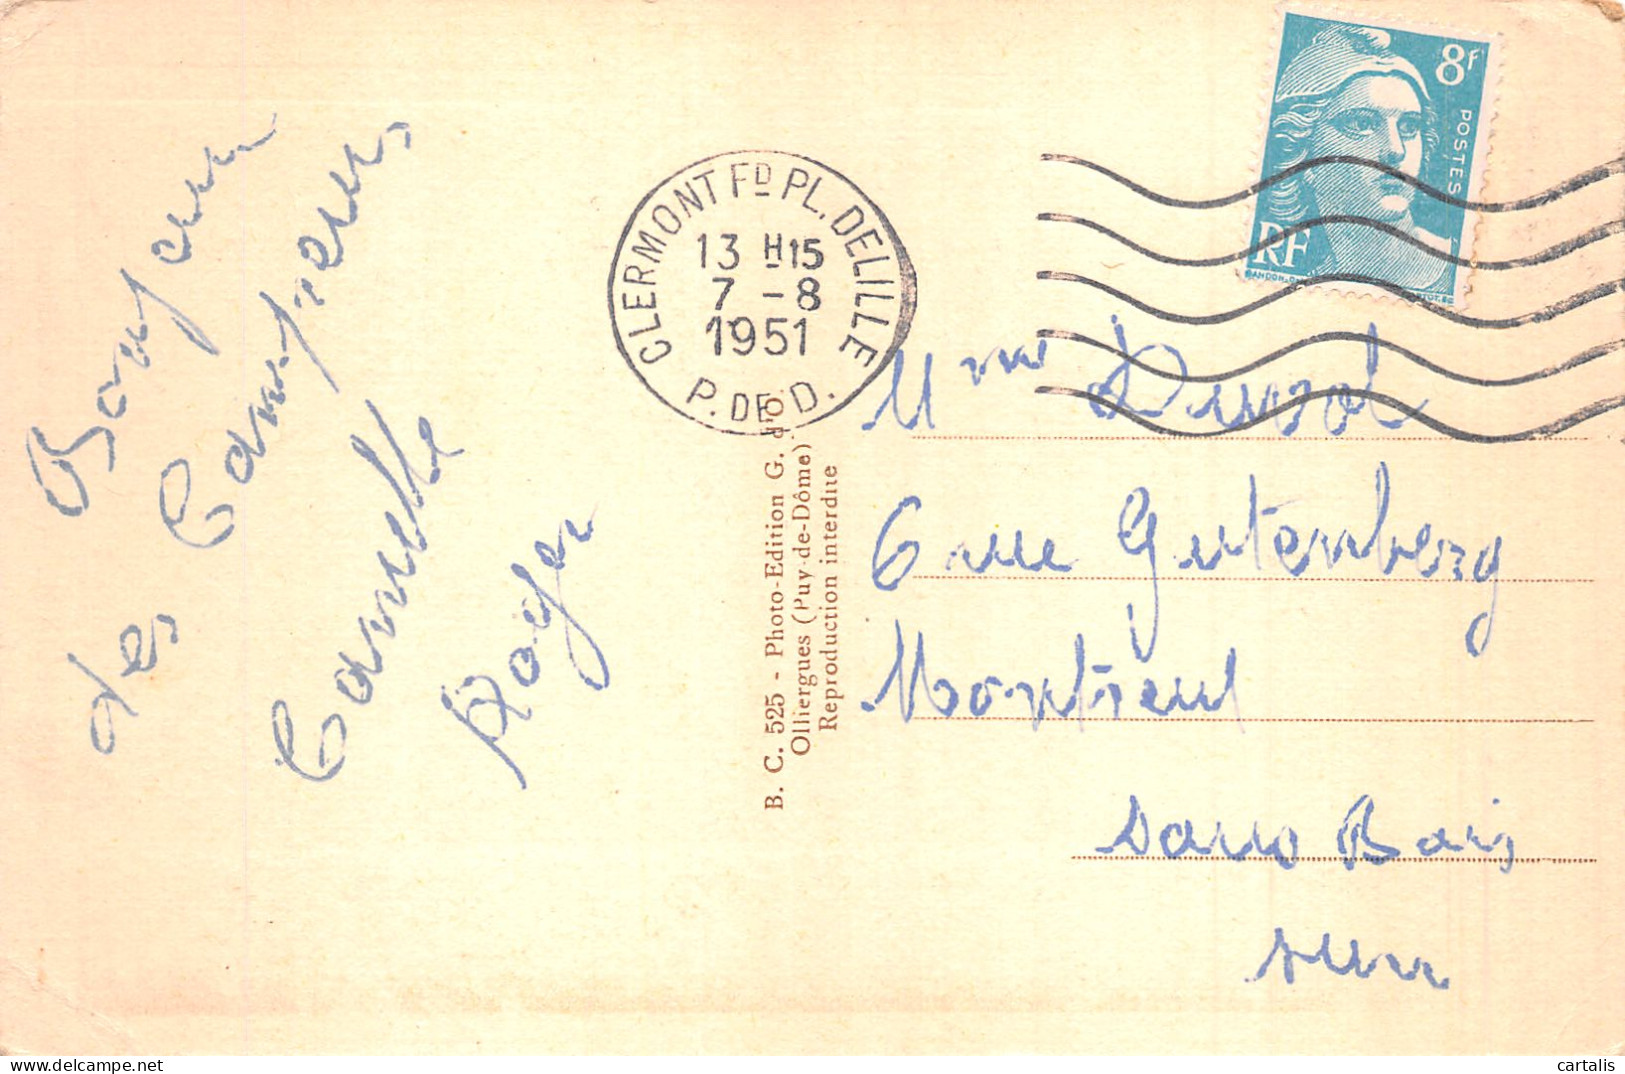 Bonjour
des Campeurs
Camille
Roger
CLERMONT FD PL. DELILLE
13 H15
7 - 8
1951
P. DE D.
8f
POSTES
RF
B. C. 525 - Photo-Edition G. d'O.
Olliergues (Puy-de-Dôme)
Reproduction interdite
Mme
6 rue Gutemberg
Montreuil
sous Bois
Seine
cartalis